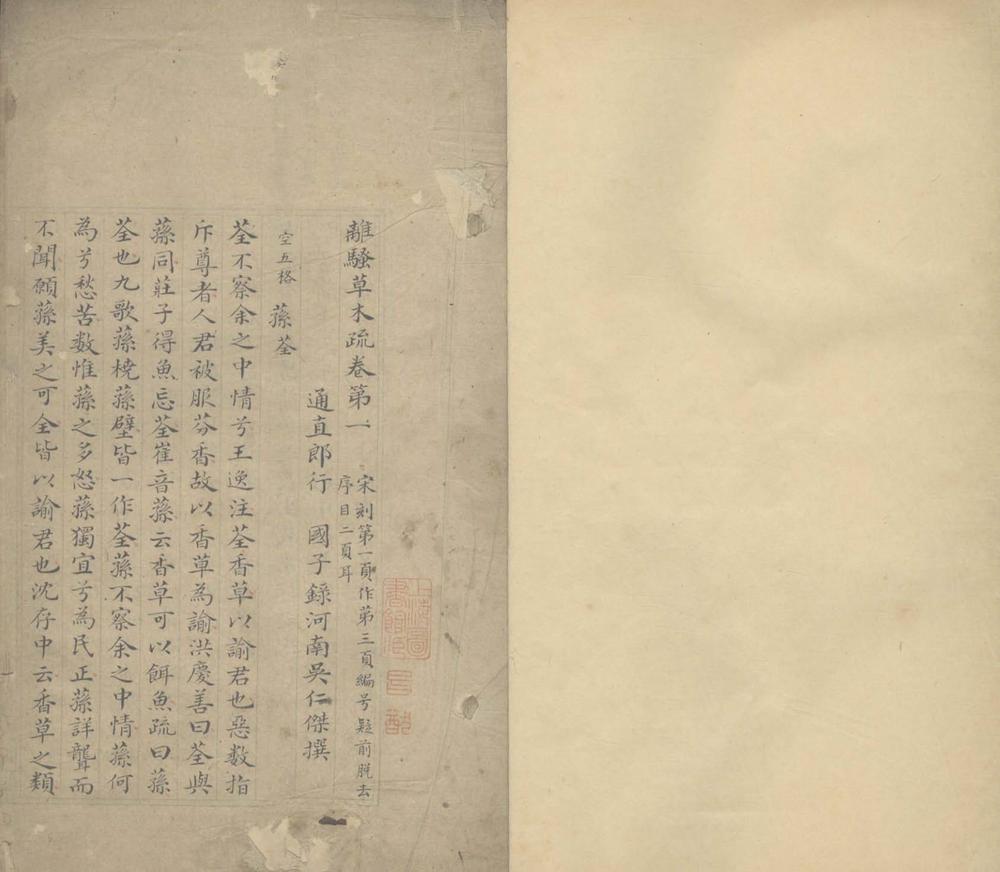 離騷草木疏卷第一
宋刻第一頁作第三頁編号疑前脫去
序目二頁耳
通直郎行 國子錄河南吳仁傑撰
空五格 蓀荃
荃不察余之中情兮王逸注荃香草以諭君也惡數指
斥尊者人君被服芬香故以香草為諭洪慶善曰荃與
蓀同莊子得魚忘荃崔音蓀云香草可以餌魚疏曰蓀
荃也九歌蓀橈蓀壁皆一作荃蓀不察余之中情蓀何
為兮愁苦数惟蓀之多怒蓀獨宜兮為民正蓀詳聾而
不聞願蓀美之可全皆以諭君也沈存中云香草之類
上海圖
書館藏